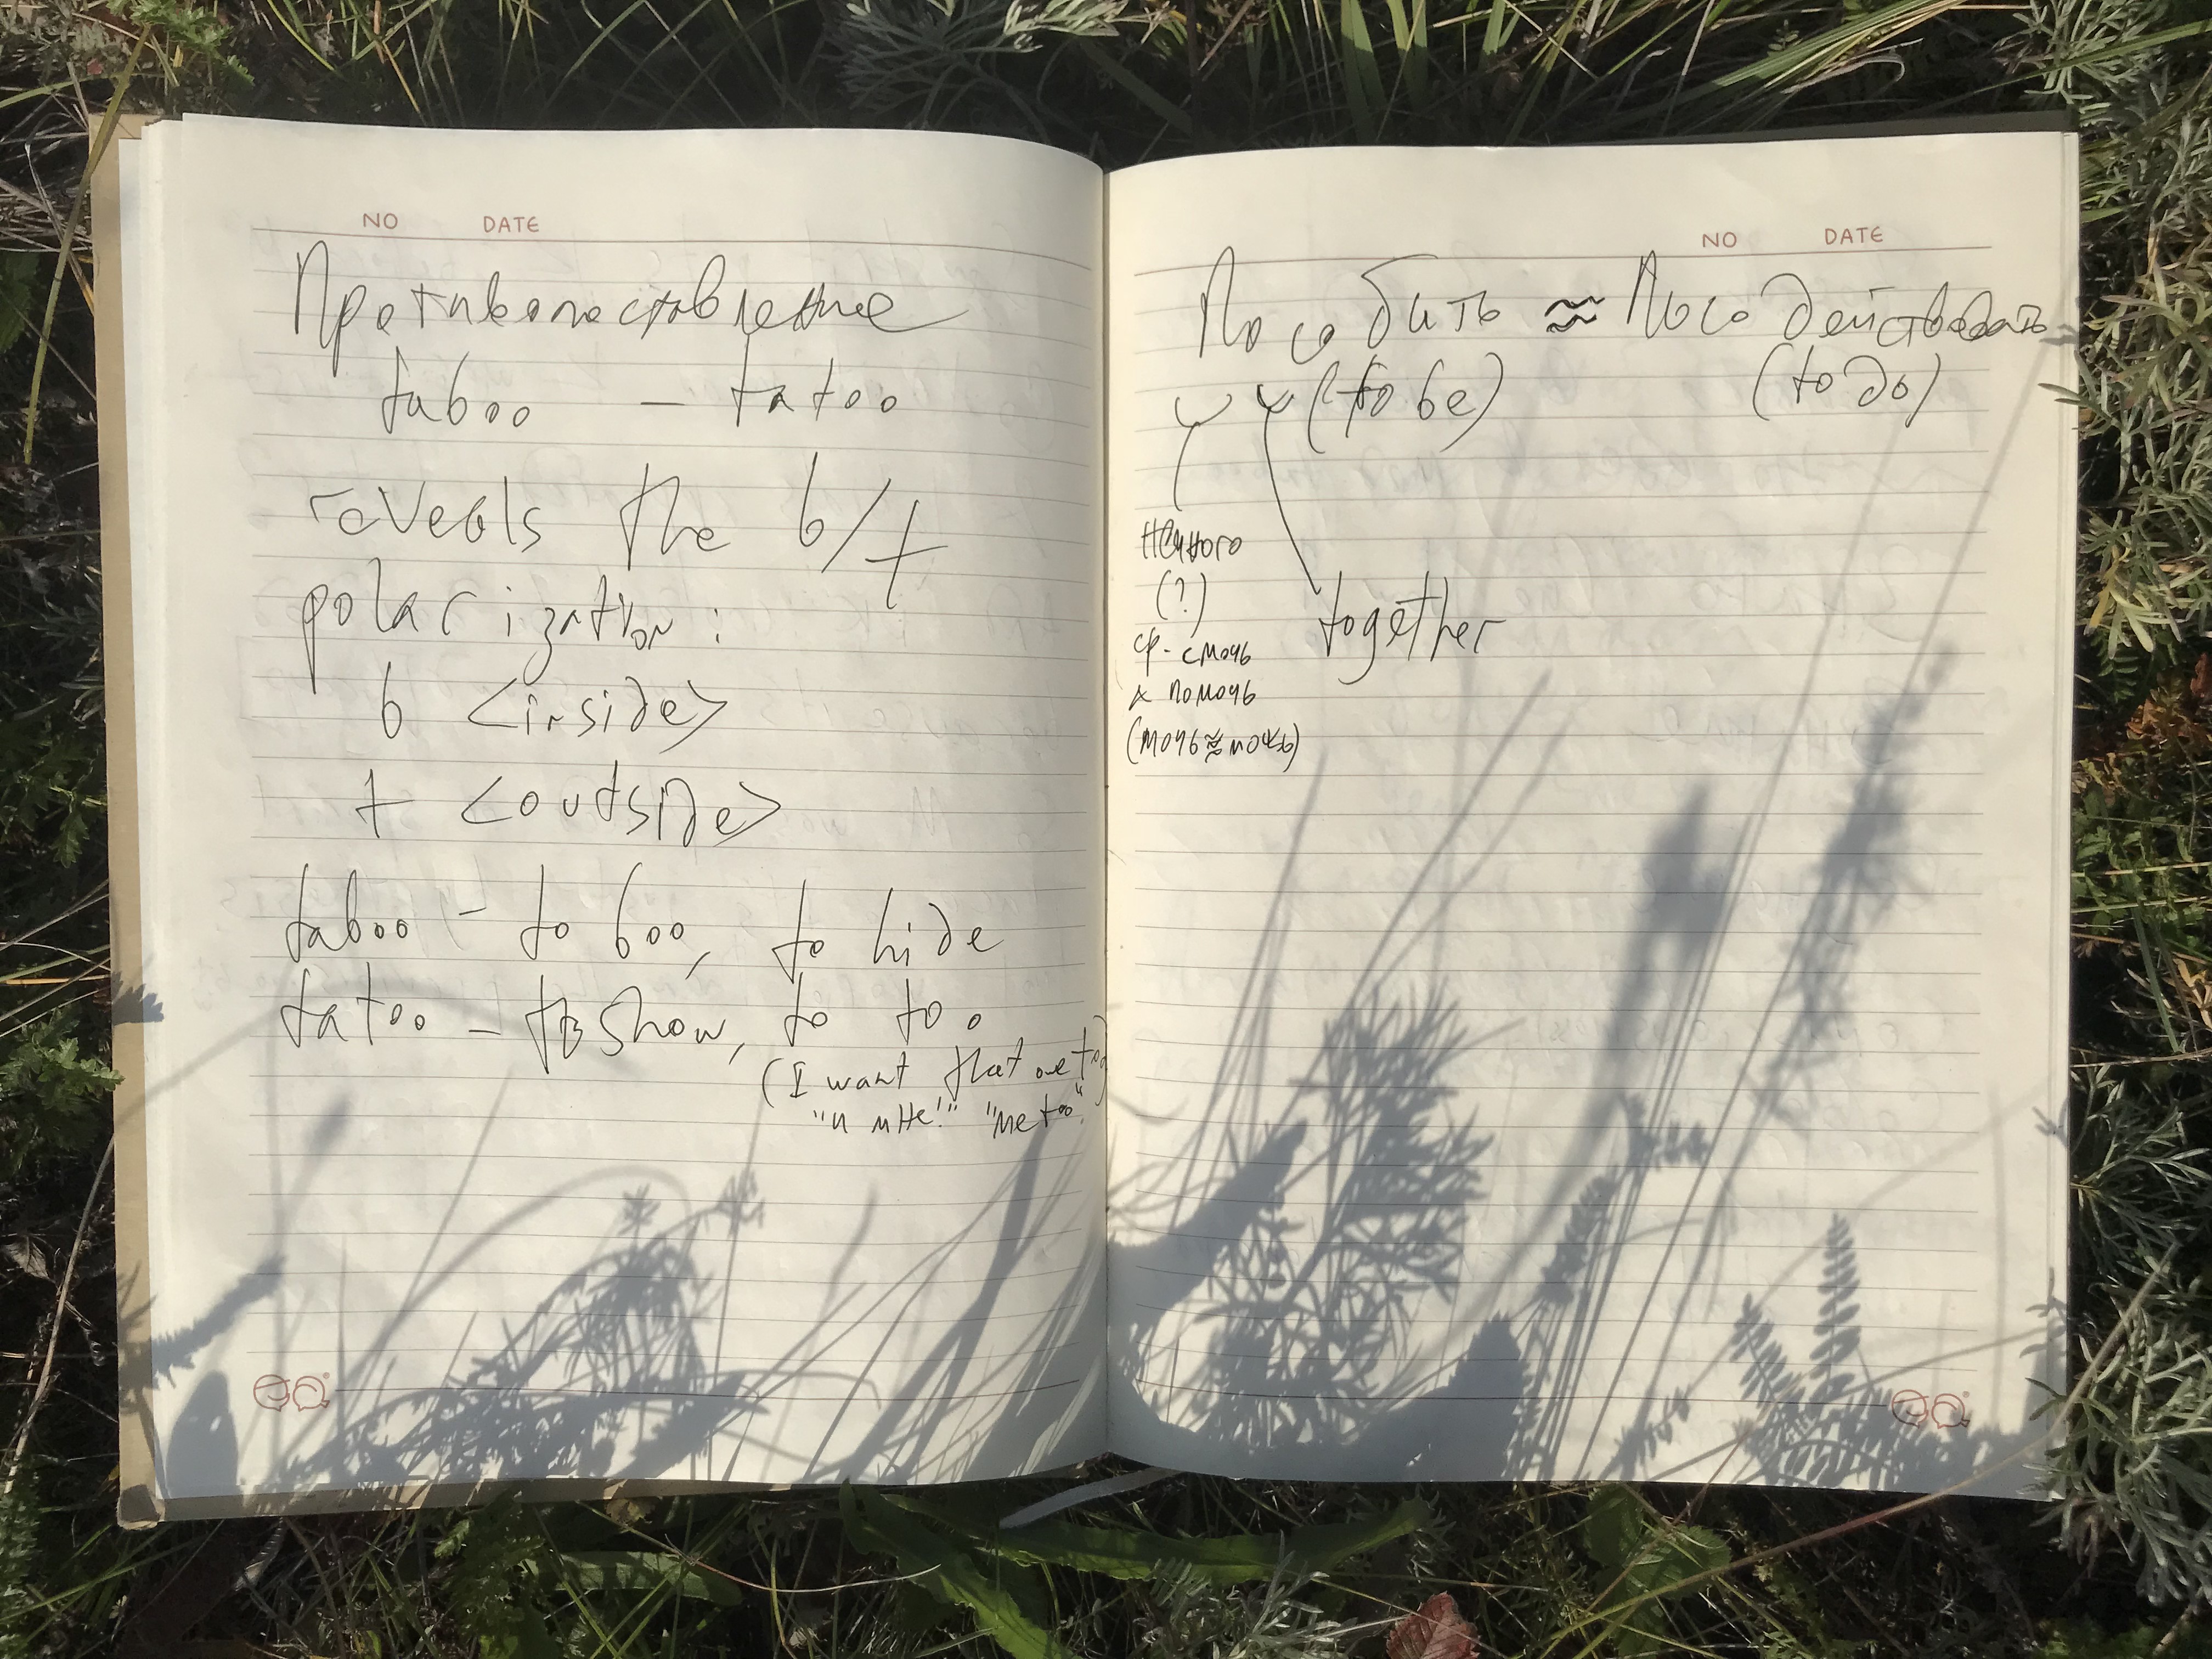 NO DATE
Противопоставление
taboo – tatoo
reveals the b/t
polarigntion:
b <inside>
t <outside>
taboo – to boo, to hide
tatoo – to show, to too
(I want that too)
"и мне!" "me too")
NO DATE
Пособить ≈ Посодействовать
(to be) (to do)
немного
(?) together
ср. смочь
и помочь
(мочь ≈ мощь)